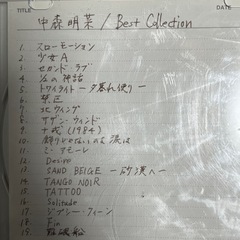 TITLE
DATE
中森明菜 / Best Collection
1. スローモーション
2. 少女A
3. セカンド・ラブ
4. 1/2の神話
5. トワイライト －夕暮れ便り－
6. 禁区
7. 北ウィング
8. サザン・ウィンド
9. 十戒 (1984)
10. 飾りじゃないのよ 涙は
11. ミ・アモーレ
12. Desire
13. SAND BEIGE －砂漠へ－
14. TANGO NOIR
15. TATTOO
16. Solitude
17. ジプシー・クィーン
18. Fin
19. 難破船